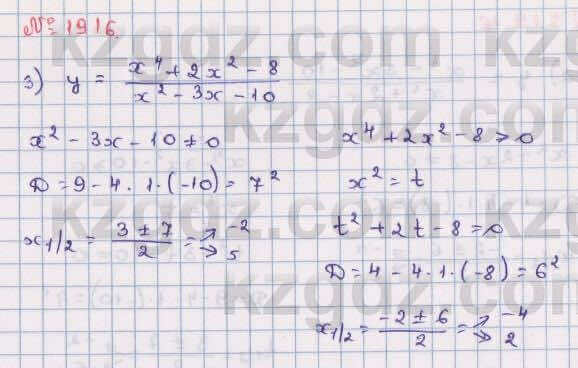 № 1916.
3) y = (x⁴ + 2x² - 8) / (x² - 3x - 10)
x² - 3x - 10 ≠ 0
D = 9 - 4 · 1 · (-10) = 7²
x₁/₂ = (3 ± 7) / 2 = ↗ -2 ↘ 5
x⁴ + 2x² - 8 > 0
x² = t
t² + 2t - 8 = 0
D = 4 - 4 · 1 · (-8) = 6²
x₁/₂ = (-2 ± 6) / 2 = ↗ -4 ↘ 2
kzgdz.com
kzgdz.com
kzgdz.com